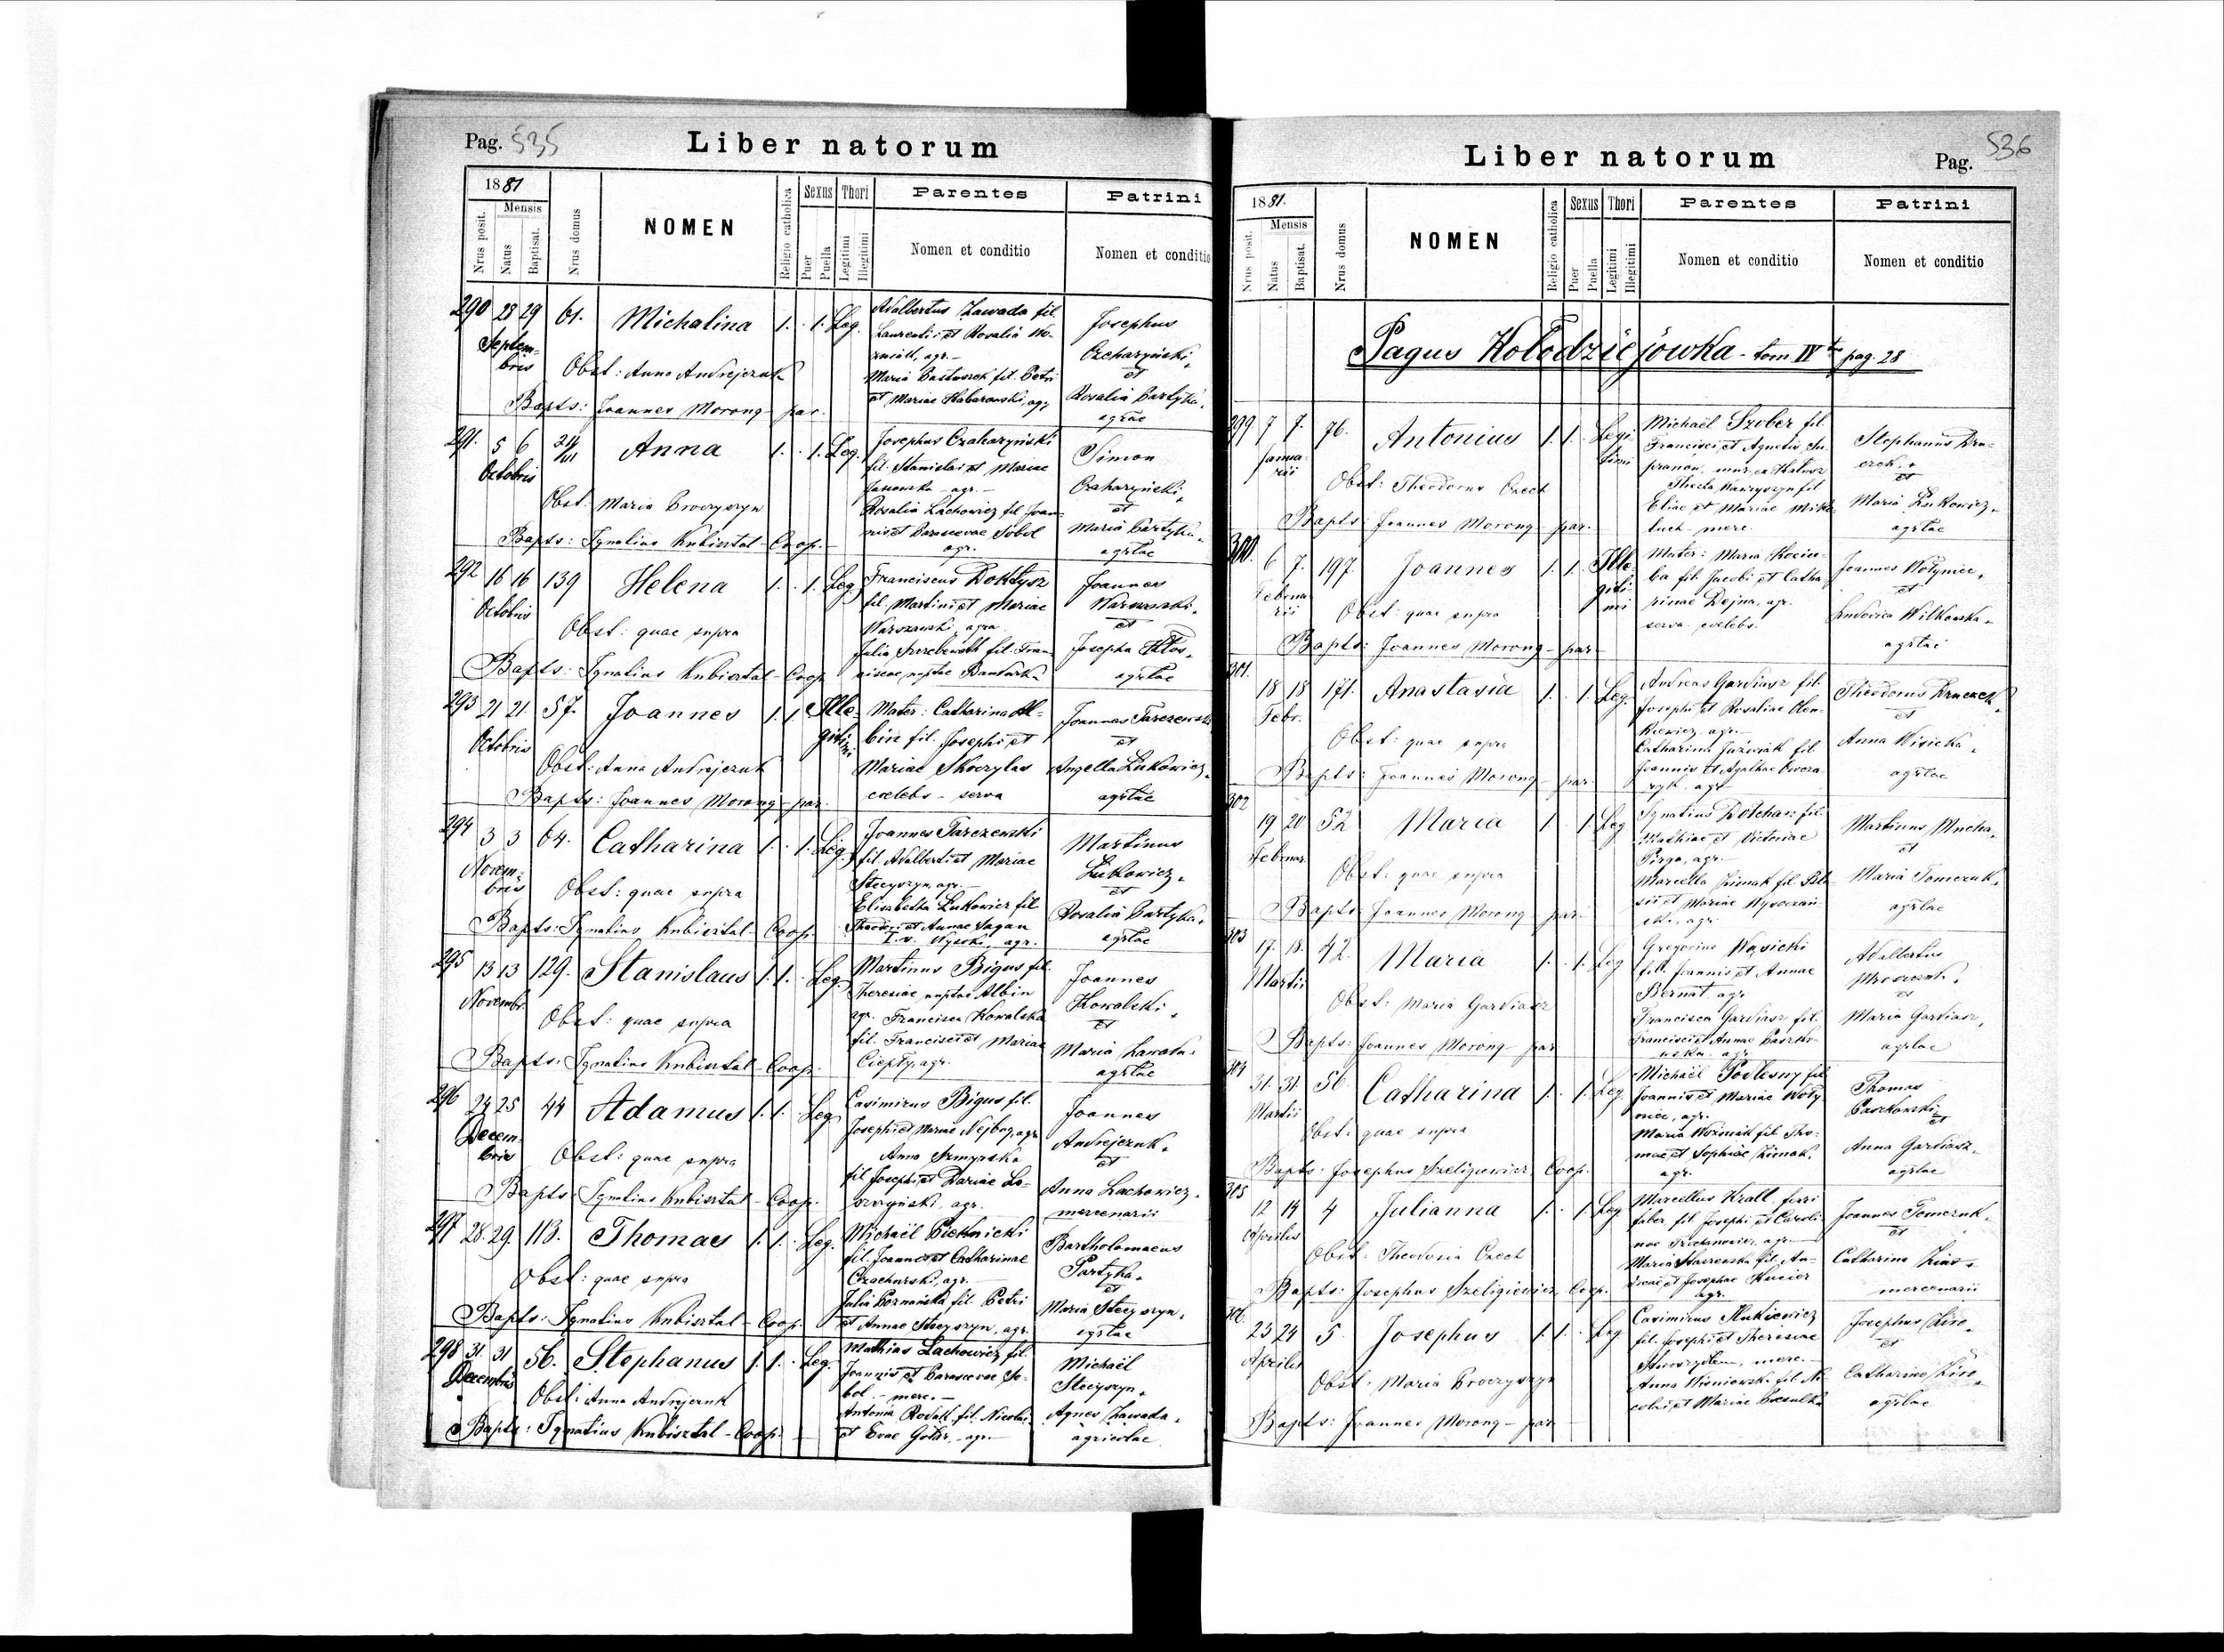 Pag. 535
Liber natorum
1881
Nrus posit.
Mensis
Natus
Baptisat.
Nrus domus
NOMEN
Religio catholica
Sexus
Puer
Puella
Thori
Legitimi
Illegitimi
Parentes
Nomen et conditio
Patrini
Nomen et conditio
290 28 29 61. Michalina 1. . 1. Leg.
Septem-
bris
Obst: Anna Andrejczuk
Bapts: Joannes Morong - par.
Adalbertus Zawada fil.
Laurentii et Rosalia Wo-
źniak, agr. -
Maria Bartoszek fil. Petri
et Mariae Habarowski, agr.
Josephus
Czcharyński,
et
Rosalia Partyka,
agrlae
291. 5 6 Anna 1. . 1. Leg.
Octobris
Obst. Maria Procyszyn
Bapts: Ignatius Kubisztal - Coop.
Josephus Czaharyński
fil. Stanislai et Mariae
Janowska - agr. -
Rosalia Lachowicz fil. Joan-
nis et Parascevae Sobol
agr.
Simon
Czaharyński,
et
Maria Partyka,
agrlae
292 16 16 139 Helena 1. . 1. Leg.
Octobris
Obst: quae supra
Bapts: Ignatius Kubisztal - Coop
Franciscus Dołtysz
fil. Martini et Mariae
Warszawski, agra.
Julia fil. Fran-
ciscae nuptae
Joannes
Warszawski,
et
Josepha Kłos,
agrlae
293 21 21. 57. Joannes 1. 1 Ille-
gitimi
Octobris
Obst: Anna Andrejczuk
Bapts: Joannes Morong - par.
Mater: Catharina Al-
bin fil. Josephi et
Mariae Skoczylas
coelebs - serva
Joannes Tarczewski
et
Angella Łukowicz,
agrlae
294 3 3 64. Catharina 1. . 1. Leg.
Novem-
bris
Obst: quae supra
Bapts: Ignatius Kubisztal Coop.
Joannes Tarczewski
fil. Adalberti et Mariae
Stecyszyn, agr. -
Elisabetha Łukowicz fil
Theodori et Annae Sagan
I. v. Wysocki, agr.
Martinus
Łukowicz,
et
Rosalia Partyka,
agrlae
295 13 13 129. Stanislaus 1. 1. . Leg.
Novembr.
Obst: quae supra
Bapts: Ignatius Kubisztal - Coop.
Martinus Bigus fil.
Theresiae nuptae Albin
agr. Francisca Kowalska
fil. Francisci et Mariae
Ciepły, agr.
Joannes
Kowalski,
et
Maria Zawada.
agrlae
296 24 25 44 Adamus 1. 1. Leg.
Decem-
bris
Obst: quae supra
Bapts Ignatius Kubisztal - Coop.
Casimirus Bigus fil.
Josephi et Mariae Nejbog, agr
Anna Szmyrska
fil Josephi et Dariae
agr.
Joannes
Andrejczuk,
et
Anna Lachowicz,
mercenarii
297 28. 29. 113. Thomas 1. 1. . Leg.
Obst: quae supra
Bapts: Ignatius Kubisztal - Coop.
Michaël Piechnicki
fil. Joannis et Catharinae
Czachurski, agr.
Julia Poznańska fil. Petri
et Annae Stecyszyn, agr.
Bartholomaeus
Partyka,
et
Maria Stecyszyn,
agrlae
298 31. 31 56. Stephanus 1. 1. . Leg.
Decembris
Obst: Anna Andrejczuk
Bapts: Ignatius Kubisztal - Coop.
Mathias Lachowicz fil.
Joannis et Parascevae So-
bol. - merc. -
Antonia fil. Nicolai
et Evae agr. -
Michaël
Stecyszyn,
Agnes Zawada,
agricolae
Liber natorum
Pag. 536
1881.
Nrus posit.
Mensis
Natus
Baptisat.
Nrus domus
NOMEN
Religio catholica
Sexus
Puer
Puella
Thori
Legitimi
Illegitimi
Parentes
Nomen et conditio
Patrini
Nomen et conditio
Pagus Kołodziejówka - tom. IV pag. 28
299 7 7. 76. Antonius 1. 1. Legi-
timi
Janua-
rii
Obst: Theodorus Czech
Bapts: Joannes Morong - par.
Michaël Szober fil.
Francisci et Agnetis
Thecla Wawryszyn fil
Eliae et Mariae
merc.
Stephanus
et
Maria Łukowicz,
agrlae
300. 6 7. 197. Joannes 1. 1. Ille-
giti-
mi
Februa-
rii
Obst: quae supra
Bapts: Joannes Morong - par
Mater: Maria Kociu-
ba fil. Jacobi et Catha-
rinae Dejna, agr.
serva coelebs.
Joannes Wołyniec,
et
Ludovica Witkowska,
agrlae
301. 18 18 171. Anastasia 1. . 1. Leg.
Febr.
Obst: quae supra
Bapts: Joannes Morong - par.
Andreas Gardiasz fil.
Josephi et Rosaliae Olen-
kiewicz agr. -
Catharina Juźwiak fil.
Joannis et Agathae
agr
Theodorus Krawczuk,
et
Anna Wisicka,
agrlae
302 19 20 52 Maria 1. . 1 Leg
Februar.
Obst: quae supra
Bapts: Joannes Morong par.
Ignatius fil.
Mathiae et Victoriae
Pirga, agr. -
Marcella Zimak fil.
et Mariae
agr.
Martinus Mucha,
et
Maria Tomczuk,
agrlae
303 17. 18. 42. Maria 1. . 1. Leg
Martii
Obst: Maria Gardiasz
Bapts: Joannes Morong - par
Gregorius Wąsicki
fil. Joannis et Annae
Bernat. agr
Francisca Gardiasz fil.
Francisci et Annae Paszko-
wska. agr.
Adalbertus
et
Maria Gardiasz,
agrlae
304 31. 31. 56. Catharina 1. . 1. Leg.
Martii
Obst: quae supra
Bapts: Josephus Szeligiewicz Coop.
Michaël Podlesny fil
Joannis et Mariae Woły-
niec, agr.
Maria Woźniak fil. Tho-
mae et Sophiae Zimak,
agr.
Thomas
Paszkowski
et
Anna Gardiasz,
agrlae
305 12 14 4 Julianna 1. . 1 Leg
Aprilis
Obst. Theodoria Czech
Bapts: Josephus Szeligiewicz Coop.
Marcellus Krall, ferri
faber, fil. Josephi et Caroli-
nae agr. -
Maria fil. An-
dreae et Josephae
agr.
Joannes Tomczuk,
et
Catharina
mercenarii
306. 23 24 5. Josephus 1. 1. . Leg
Aprilis
Obst: Maria Procyszyn
Bapts: Joannes Morong - par
Casimirus
fil. Josephi et Theresiae
merc. -
Anna Wisniowski fil. Ni-
colai et Mariae
Josephus
et
Catharina
agrlae